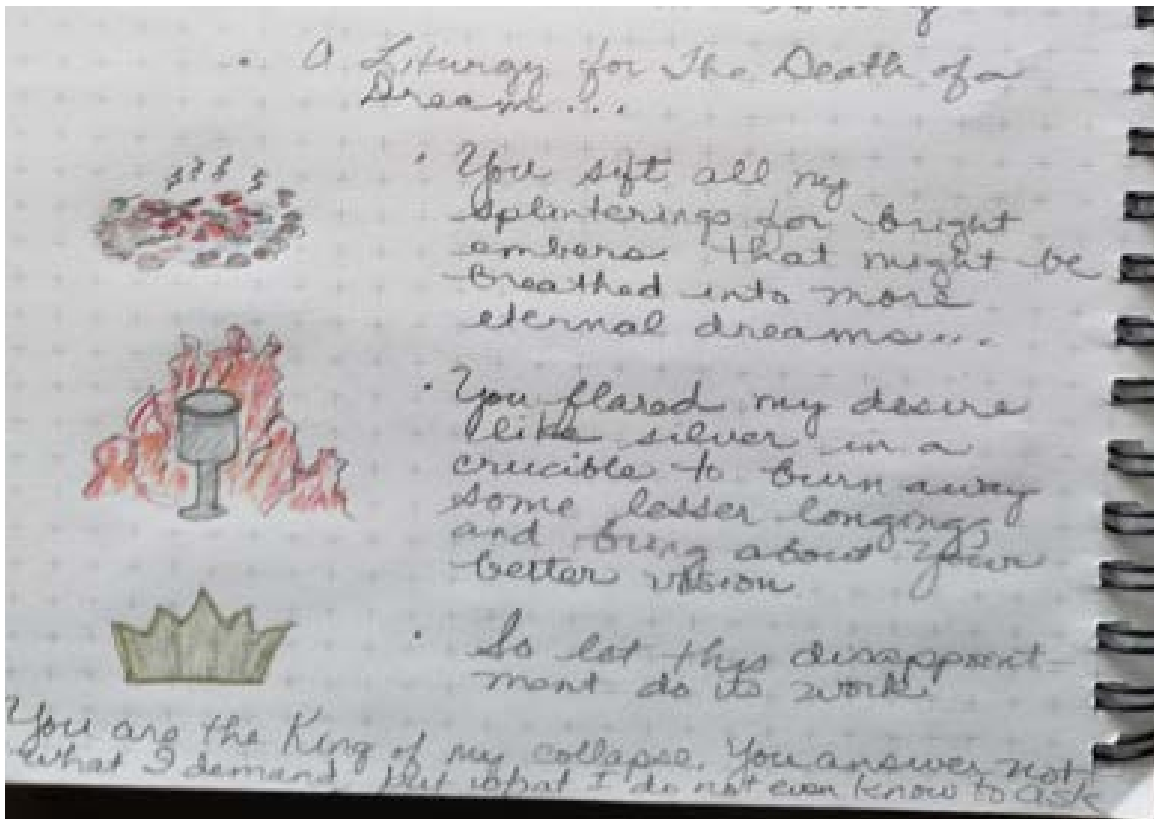 • A Liturgy for The Death of a
Dream...
• You sift all my
splinterings for bright
embers that might be
breathed into more
eternal dreams...
• You flared my desire
like silver in a
crucible to burn away
some lesser longings
and bring about your
better vision
• So let this disappoint-
ment do its work.
You are the King of my collapse. You answer not
what I demand, but what I do not even know to ask